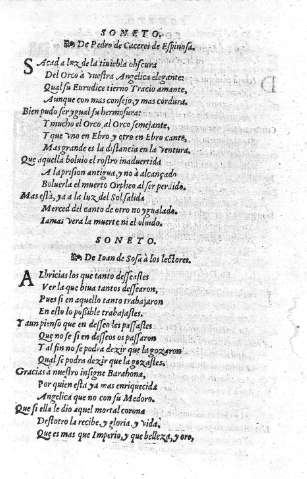 SONETO.
De Pedro de Caceres de Espinosa.
SAcad a luz de la tiniebla obscura
Del Orco à vuestra Angelica elegante:
Qual su Eurodice tierno Tracio amante,
Aunque con mas consejo, y mas cordura.
Bien pudo ser ygual su hermosura:
Y mucho el Orco, al Orco semejante,
Y que vno en Ebro y otro en Ebro cante,
Mas grande es la distancia en la ventura.
Que aquella boluio el rostro inaduertida
A la prision antigua, y no à alcançado
Boluerla el muerto Orpheo al ser perdido.
Mas està, ya a la luz del Sol salida
Merced del canto de otro no ygualado.
Iamas vera la muerte ni el oluido.
SONETO.
De Ioan de Sosa à los lectores.
ALbricias los que tanto desseastes
Ver la que biua tantos dessearon,
Pues si en aquello tanto trabajaron
En esto lo possible trabajastes.
Y aun pienso que en desseo les passastes
Que no se si en desseos os passaron
Tal fin no se podra dezir que la gozaron
Qual se podra dezir que la gozastes.
Gracias à nuestro insigne Barahona,
Por quien està ya mas enriquecida
Angelica que no con su Medoro.
Que si ella le dio aquel mortal corona
Destotro la recibe, y gloria, y vida,
Que es mas que Imperio, y que belleza, y oro,